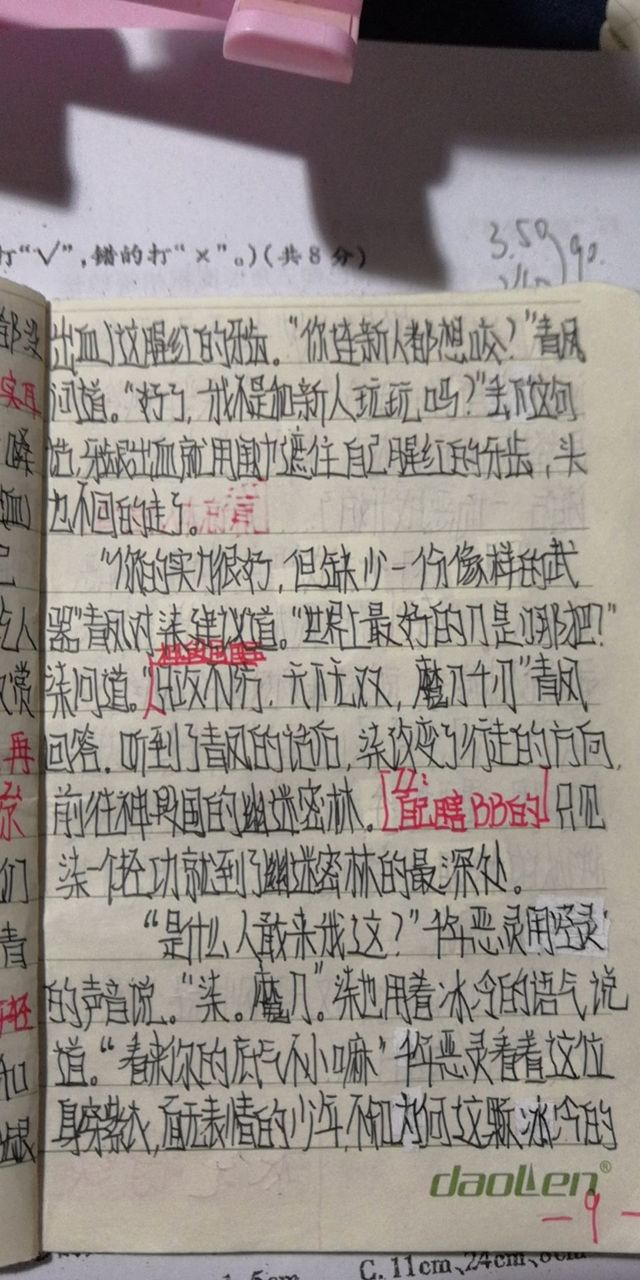 打“√”,错的打“×”。)(共8分)
3.59
90.
出血))这腥红的牙齿。“你连新人都想咬?”青风
问道。“好了,我不是和新人玩玩吗?”丢下这句
话,牙龈出血就用围巾遮住自己腥红的牙齿,头
也不回的走了。
“你的实力很好,但缺少一份像样的武
器”青风对柒建议道。“世界上最好的刀是哪把?”
柒问道。“只攻不防,天下无双,魔刀千刃”青风
回答.听到了青风的话后,柒改变了行走的方向,
前往神 国的幽迷密林。[ 自己瞎BB的]只见
柒一个轻功就到了幽迷密林的最深处。
“是什么人敢来我这?”千年恶灵用空灵
的声音说。“柒。魔刀”。柒也用着冰冷的语气说
道。“看来你的底气不小嘛”千年恶灵看着这位
身穿紫衣,面无表情的少年,不知为何这颗冰冷的
daolien®
-9-
C.11cm、24cm、8cm
都没
嗓
血
己
吃人
欣赏
再
京
们
青
年轻
和
龈